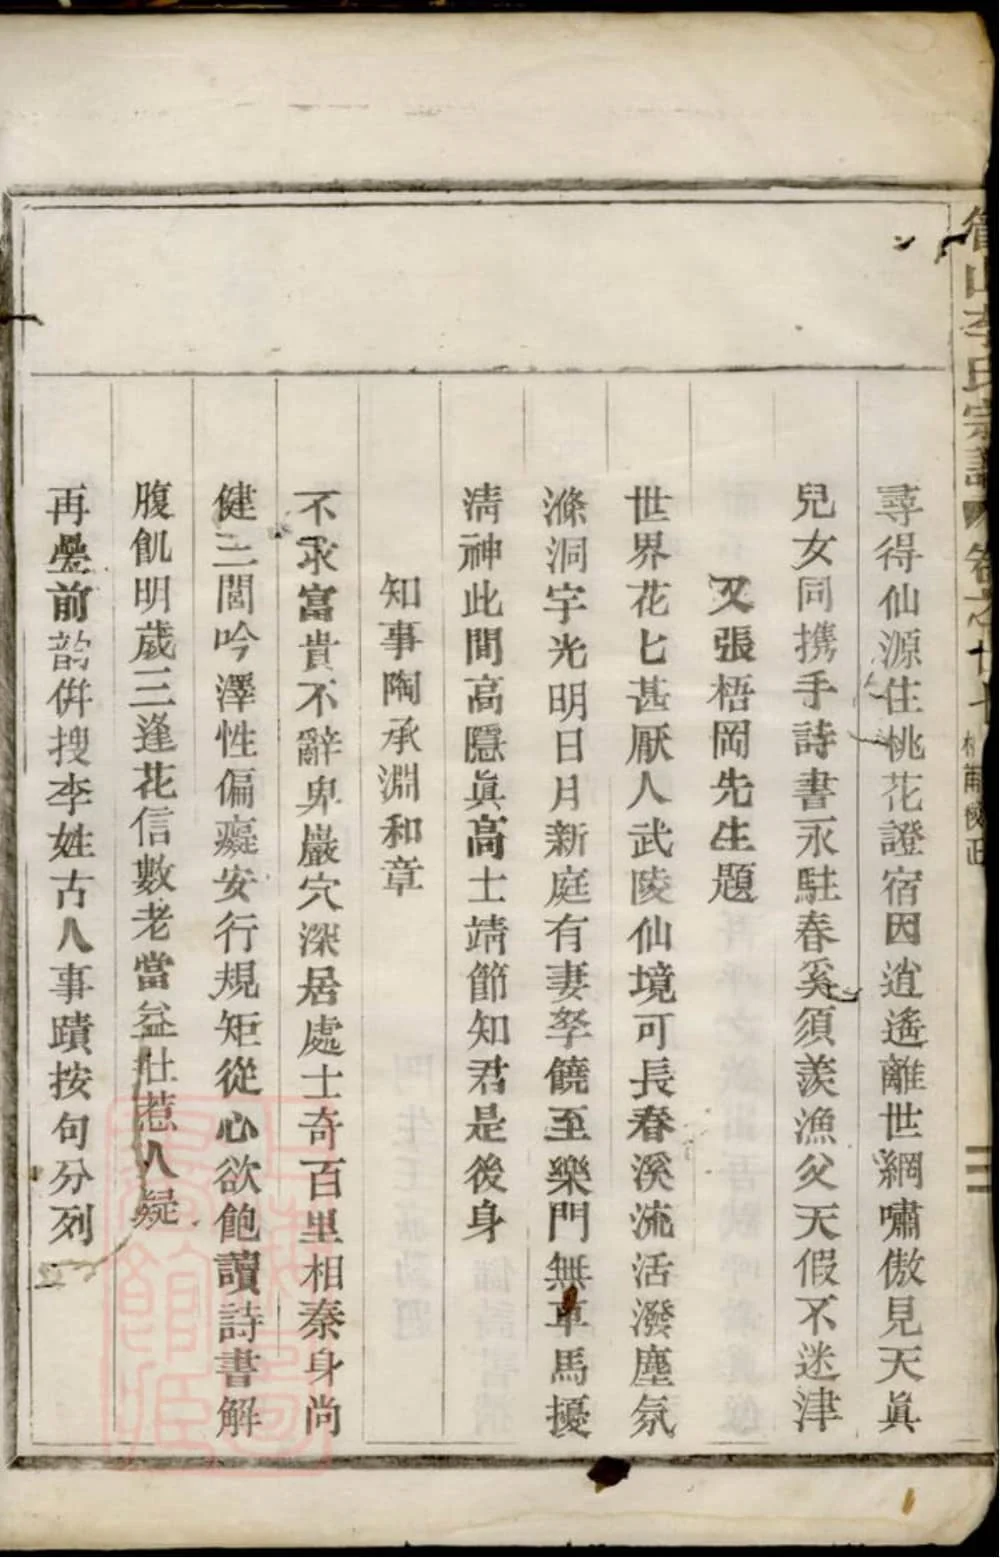 山李氏宗譜 卷之十七
尋得仙源住桃花證宿因逍遙離世網嘯傲見天眞
兒女同携手詩書永駐春奚須羡漁父天假不迷津
又張梧岡先生題
世界花七甚厭人武陵仙境可長春溪流活潑塵氛
滌洞宇光明日月新庭有妻孥饒至樂門無車馬擾
淸神此間高隱眞高士靖節知君是後身
知事陶承淵和章
不求富貴不辭卑巖穴深居處士奇百里相秦身尚
健三閭吟澤性偏癡安行規矩從心欲飽讀詩書解
腹飢明歲三逢花信數老當益壯惹人疑
再疊前韵倂搜李姓古人事蹟按句分列